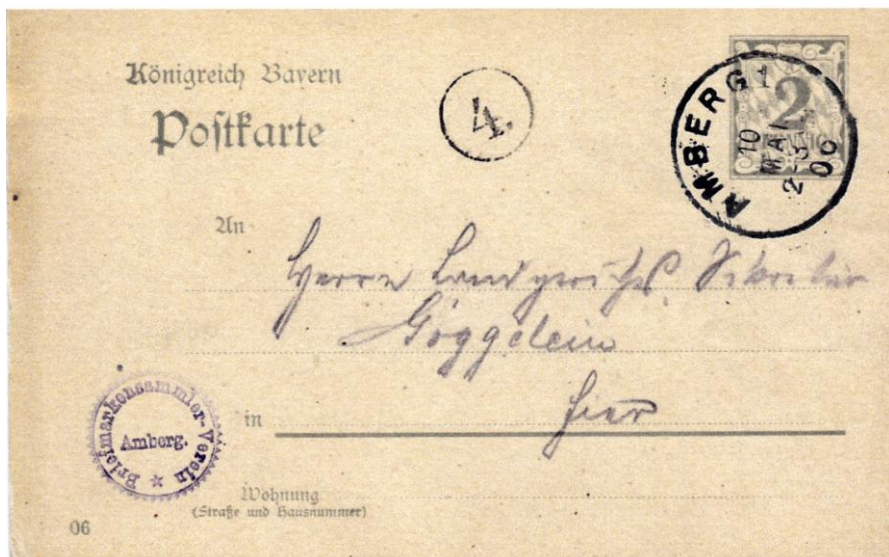 Königreich Bayern
Postkarte
4.
AMBERG 1
10
MAI
2-3
06
2
PFENNIG
An
Herrn Landgerichts Sekretär
Göggelein
in hier
Briefmarkensammler-Verein
Amberg.
Wohnung
(Straße und Hausnummer)
06